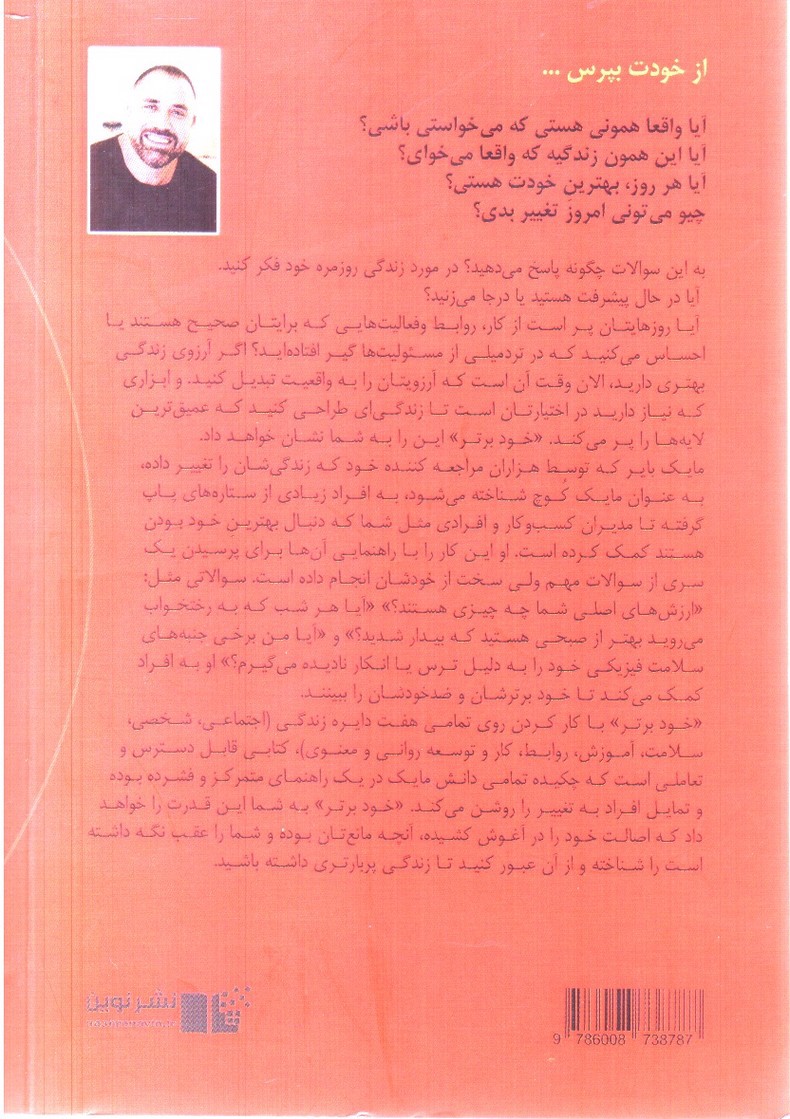 از خودت بپرس ...
آیا واقعا همونی هستی که می‌خواستی باشی؟
آیا این همون زندگیه که واقعا می‌خوای؟
آیا هر روز، بهترینِ خودت هستی؟
چیو می‌تونی امروز تغییر بدی؟
به این سوالات چگونه پاسخ می‌دهید؟ در مورد زندگی روزمره خود فکر کنید.
آیا در حال پیشرفت هستید یا درجا می‌زنید؟
آیا روزهایتان پر است از کار، روابط وفعالیت‌هایی که برایتان صحیح هستند یا
احساس می‌کنید که در تردمیلی از مسئولیت‌ها گیر افتاده‌اید؟ اگر آرزوی زندگی
بهتری دارید، الان وقت آن است که آرزویتان را به واقعیت تبدیل کنید. و ابزاری
که نیاز دارید در اختیارتان است تا زندگی‌ای طراحی کنید که عمیق‌ترین
لایه‌ها را پر می‌کند. «خود برتر» این را به شما نشان خواهد داد.
مایک بایر که توسط هزاران مراجعه کننده خود که زندگی‌شان را تغییر داده،
به عنوان مایک کُوچ شناخته می‌شود، به افراد زیادی از ستاره‌های پاپ
گرفته تا مدیران کسب‌وکار و افرادی مثل شما که دنبال بهترینِ خود بودن
هستند کمک کرده است. او این کار را با راهنمایی آن‌ها برای پرسیدن یک
سری از سوالات مهم ولی سخت از خودشان انجام داده است. سوالاتی مثل:
«ارزش‌های اصلی شما چه چیزی هستند؟» «آیا هر شب که به رختخواب
می‌روید بهتر از صبحی هستید که بیدار شدید؟» و «آیا من برخی جنبه‌های
سلامت فیزیکی خود را به دلیل ترس یا انکار نادیده می‌گیرم؟» او به افراد
کمک می‌کند تا خود برترشان و ضدخودشان را ببینند.
«خود برتر» با کار کردن روی تمامی هفت دایره زندگی (اجتماعی، شخصی،
سلامت، آموزش، روابط، کار و توسعه روانی و معنوی)، کتابی قابل دسترس و
تعاملی است که چکیده تمامی دانش مایک در یک راهنمای متمرکز و فشرده بوده
و تمایل افراد به تغییر را روشن می‌کند. «خود برتر» به شما این قدرت را خواهد
داد که اصالت خود را در آغوش کشیده، آنچه مانع‌تان بوده و شما را عقب نگه داشته
است را شناخته و از آن عبور کنید تا زندگی پربارتری داشته باشید.
نشر نوین
9 786008 738787